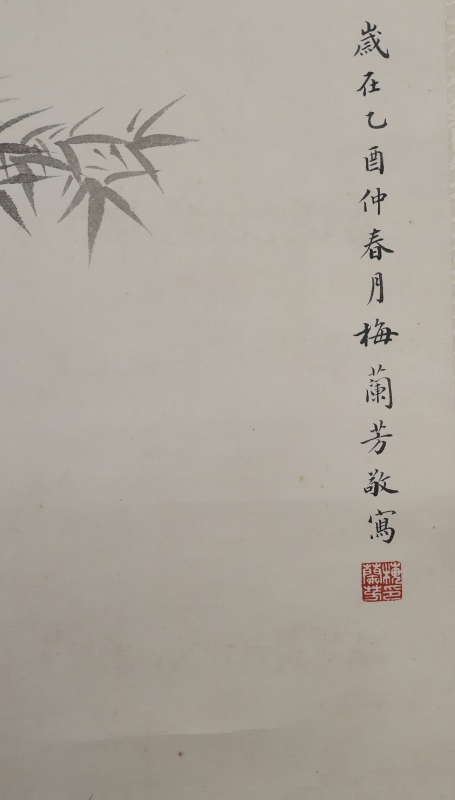 歲在乙酉仲春月梅蘭芳敬寫
梅蘭芳印